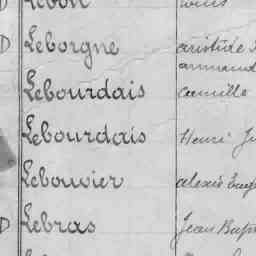 Lebon Louis
D Leborgne aristide
armand
Lebourdais Camille
Lebourdais Henri
Lebouvier alexis
D Lebras Jean